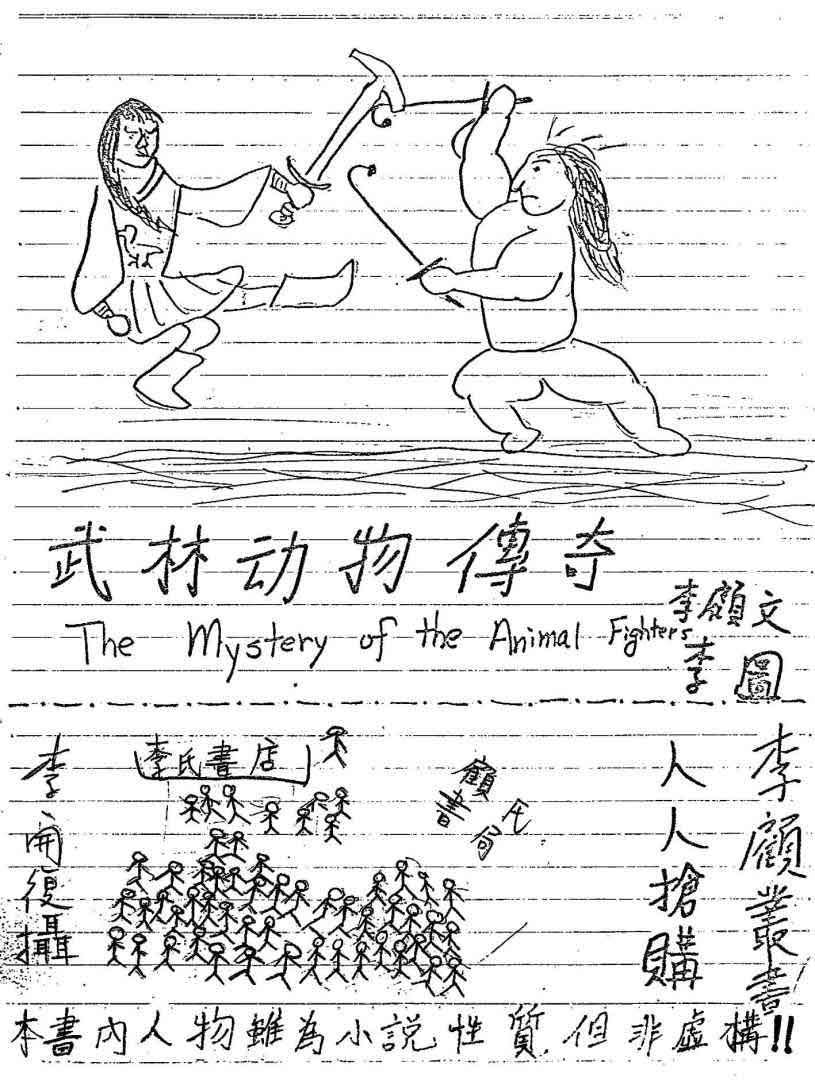 武林动物傳奇
The Mystery of the Animal Fighters
李顧文
李圖
李顧叢書
人人搶購
李氏書店
顧氏書局
李開復攝
本書內人物雖為小説性質但非虛構!!